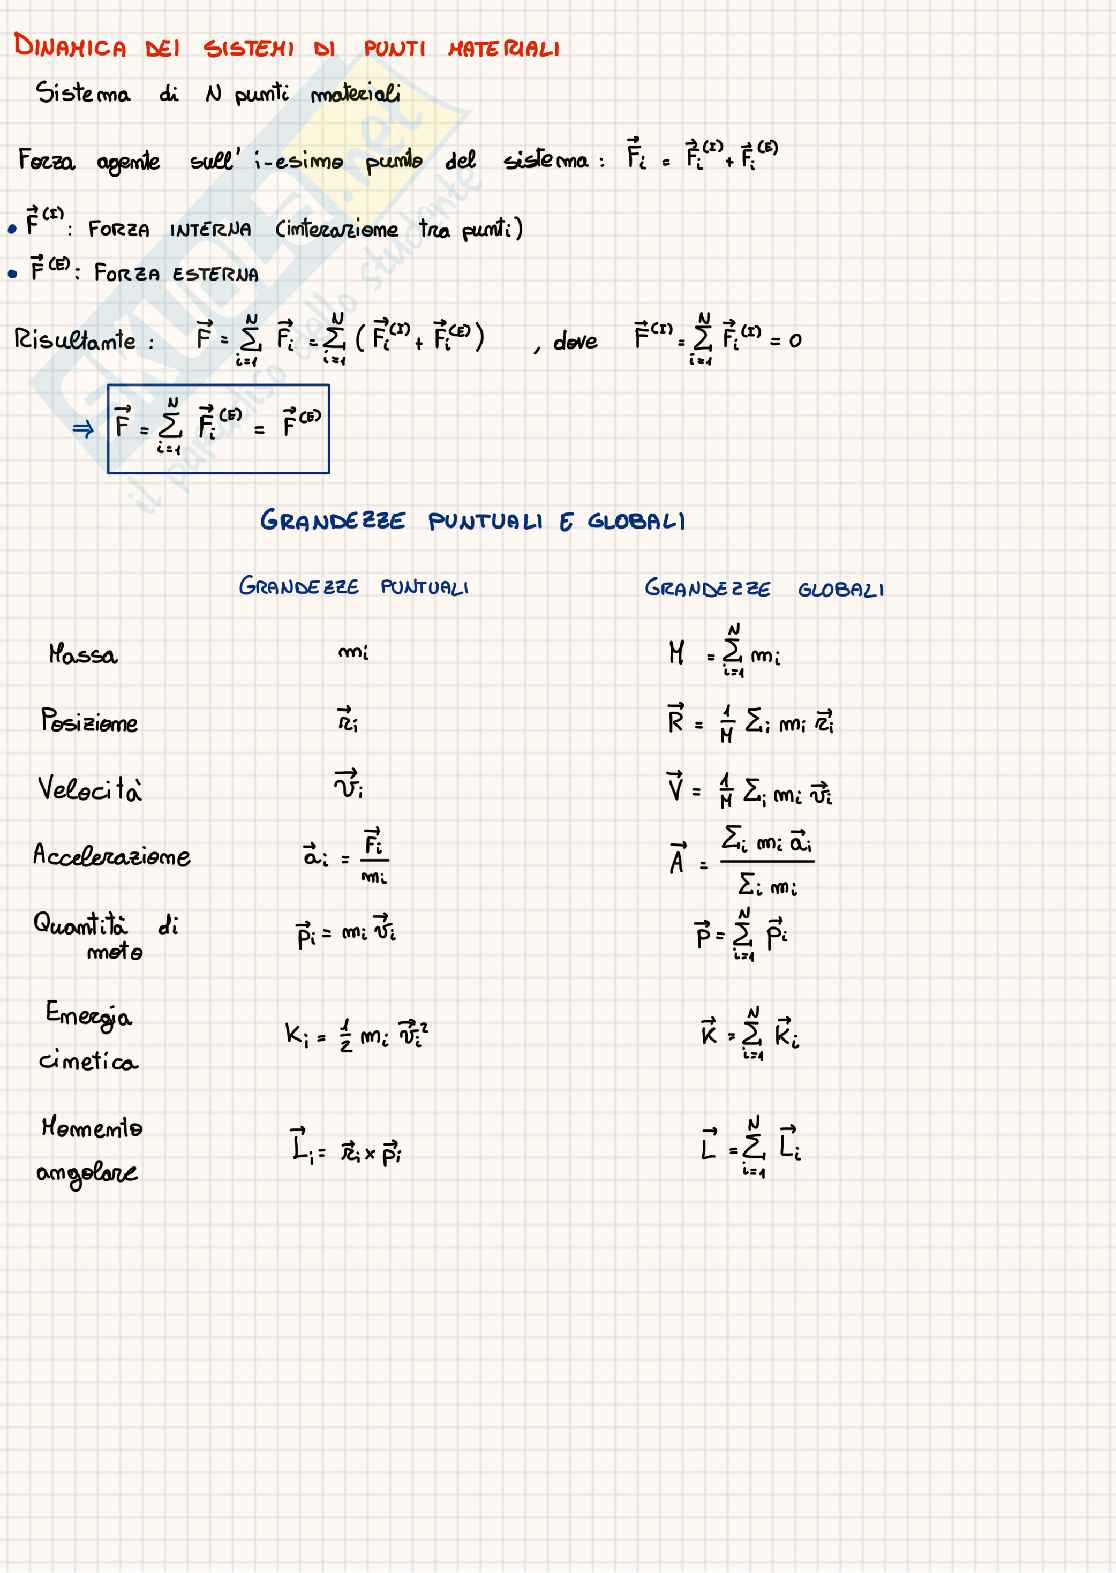 DINAMICA DEI SISTEMI DI PUNTI MATERIALI
Sistema di N punti materiali
Forza agente sull' i-esimo punto del sistema: F⃗ᵢ = F⃗ᵢ⁽ᴵ⁾ + F⃗ᵢ⁽ᴱ⁾
• F⃗⁽ᴵ⁾: FORZA INTERNA (interazione tra punti)
• F⃗⁽ᴱ⁾: FORZA ESTERNA
Risultante: F⃗ = ∑ᵢ₌₁ᴺ F⃗ᵢ = ∑ᵢ₌₁ᴺ (F⃗ᵢ⁽ᴵ⁾ + F⃗ᵢ⁽ᴱ⁾) , dove F⃗⁽ᴵ⁾ = ∑ᵢ₌₁ᴺ F⃗ᵢ⁽ᴵ⁾ = 0
⇒ F⃗ = ∑ᵢ₌₁ᴺ F⃗ᵢ⁽ᴱ⁾ = F⃗⁽ᴱ⁾
GRANDEZZE PUNTUALI E GLOBALI
GRANDEZZE PUNTUALI GRANDEZZE GLOBALI
Massa mᵢ M = ∑ᵢ₌₁ᴺ mᵢ
Posizione r⃗ᵢ R⃗ = 1/M ∑ᵢ mᵢ r⃗ᵢ
Velocità v⃗ᵢ V⃗ = 1/M ∑ᵢ mᵢ v⃗ᵢ
Accelerazione a⃗ᵢ = F⃗ᵢ/mᵢ A⃗ = ∑ᵢ mᵢ a⃗ᵢ / ∑ᵢ mᵢ
Quantità di
moto p⃗ᵢ = mᵢ v⃗ᵢ P⃗ = ∑ᵢ₌₁ᴺ p⃗ᵢ
Energia
cinetica Kᵢ = 1/2 mᵢ v⃗ᵢ² K⃗ = ∑ᵢ₌₁ᴺ K⃗ᵢ
Momento
angolare L⃗ᵢ = r⃗ᵢ × p⃗ᵢ L⃗ = ∑ᵢ₌₁ᴺ L⃗ᵢ
SKUOLA.net
il paradiso dello studente